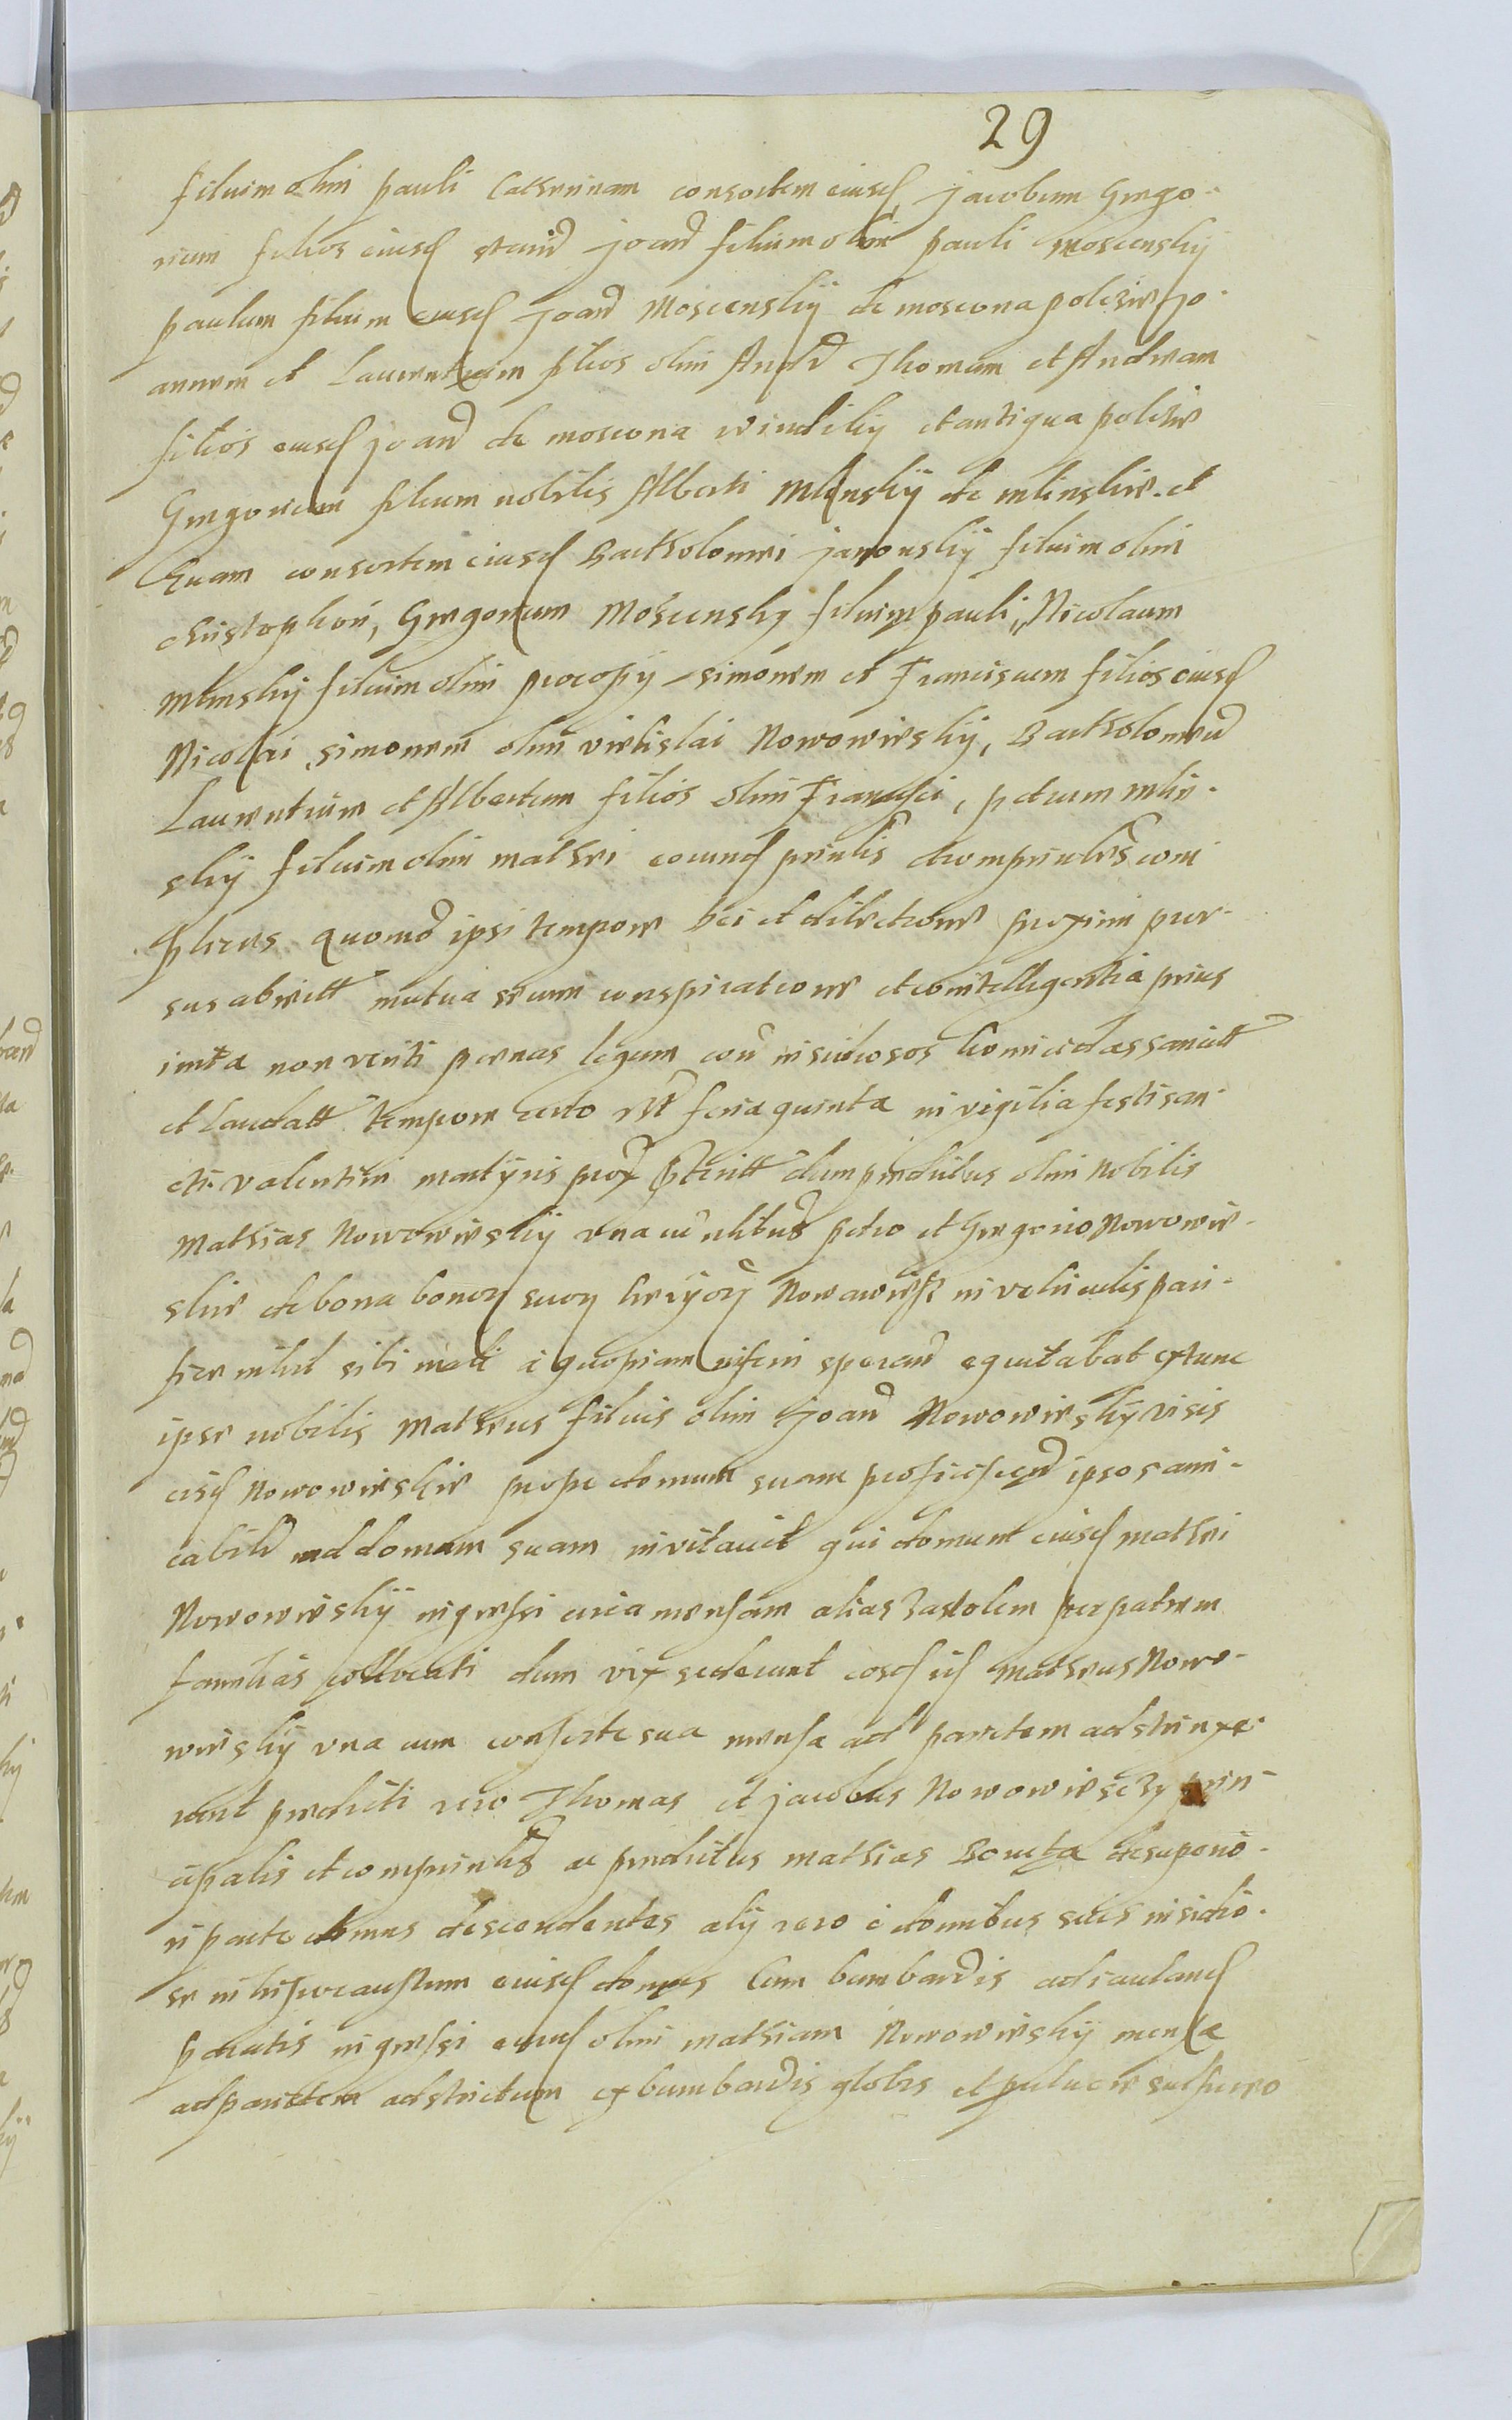 29
filium olim Pauli Catherinam consortem eiusd Jacobum Grego-
rium filios eiusd Joand filium olim Pauli Moscensky
Paulum filium eiusd Joand Moscenskÿ de Moscona
annem et Laurentium filios olim Andr Thomam et Andream
filios eiusd Joand de Moscona et antiqua
Gregorium filium nobilis Alberti Mlinskÿ de et
Euam consortem eiusd Bartholomei Janowskÿ filium olim
Christophori, Gregorium Moscensky filium Pauli, Nicolaum
Mlinskÿ filium olim Procopÿ simonem et Franciscum filios eiusd
Nicolai, simonem olim Nowowieskÿ, Bartholomeu
Laurentium et Albertum filios olim Francisci, petrum Mlin-
skÿ filium olim Mathei eorund prinlis et comprinles
quomo ipsi tempore et dilectione proximi pror-
sus mutua secum conspiratione et cointelligentia prius
inita non veriti poenas legum con insidiosos homicidas sancitt
et laudatt tempore certo feria quinta in vigilia festi san-
cti Valentini martÿris prox dum prædictus olim nobilis
Mathias Nowowieskÿ vna cu petro et Gregorio Nowowie-
skie de bona bonor suor in vehiculis paci-
fice nihil sibi mali a quopiam inferri sperand equitabat extunc
ipse nobilis Matheus filius olim Joand Nowowieskÿ visis
eisd Nowowieskie prope domum suam proficiscend ipsos ami-
cabilr ad domum suam inuitauit qui domum eiusd Mathei
Nowowieskÿ ingressi circa mensam alias Zastolem per patrem
familias collocati dum vix sederunt eosd id Matheus Nowo-
wieskÿ vna cum consorte sua mensa ad parietem adstrinxe-
runt prædicti vero Thomas et Jacobus Nowowiesczy prin-
cipalis et comprinlis ac prædictus Mathias de superio-
ri parte domus descendentes alÿ vero e domibus suis insidio-
se in eiusd domus cum bombardis ad iaculand
paratis ingressi eund olim Mathiam Nowowieskÿ mensa
ad parietem adstrictum ex bumbardis globis et puluere sulfureo